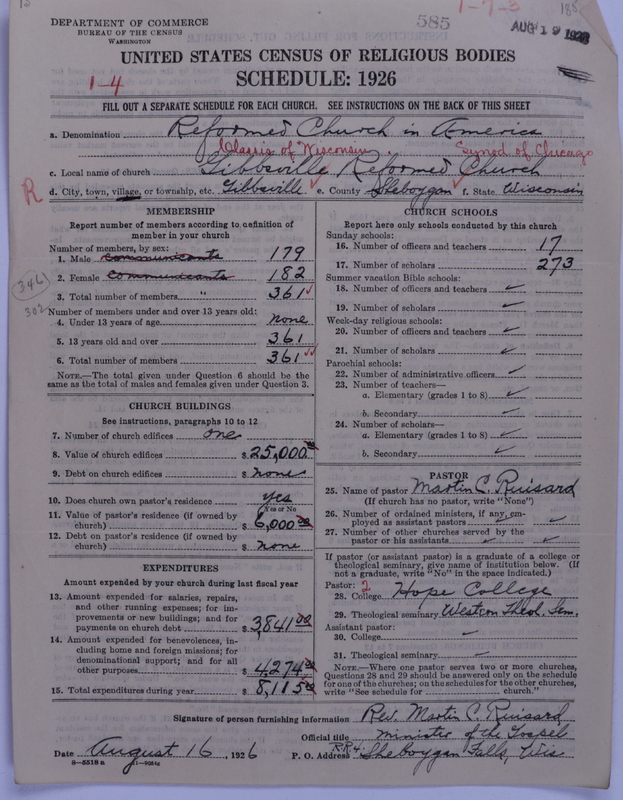 DEPARTMENT OF COMMERCE
BUREAU OF THE CENSUS
WASHINGTON
585
1-7-3
185
AUG 19 1926
UNITED STATES CENSUS OF RELIGIOUS BODIES
SCHEDULE: 1926
1-4
FILL OUT A SEPARATE SCHEDULE FOR EACH CHURCH. SEE INSTRUCTIONS ON THE BACK OF THIS SHEET
a. Denomination Reformed Church in America
Classis of Wisconsin. Synod of Chicago
c. Local name of church Gibbsville Reformed Church
R
d. City, town, village, or township, etc. Gibbsville e. County Sheboygan f. State Wisconsin
MEMBERSHIP
Report number of members according to definition of
member in your church
Number of members, by sex:
1. Male communicants 179
2. Female communicants 182
3. Total number of members " 361
346
302
Number of members under and over 13 years old:
4. Under 13 years of age none
5. 13 years old and over 361
6. Total number of members 361
NOTE.—The total given under Question 6 should be the
same as the total of males and females given under Question 3.
CHURCH BUILDINGS
See instructions, paragraphs 10 to 12
7. Number of church edifices one
8. Value of church edifices $25,000.00
9. Debt on church edifices $ none
10. Does church own pastor's residence yes
Yes or No
11. Value of pastor's residence (if owned by
church) $ 6,000 00
12. Debt on pastor's residence (if owned by
church) $ none
EXPENDITURES
Amount expended by your church during last fiscal year
13. Amount expended for salaries, repairs,
and other running expenses; for im-
provements or new buildings; and for
payments on church debt $3841 00
14. Amount expended for benevolences, in-
cluding home and foreign missions; for
denominational support; and for all
other purposes $4274 00
15. Total expenditures during year $8,115 00
CHURCH SCHOOLS
Report here only schools conducted by this church
Sunday schools:
16. Number of officers and teachers 17
17. Number of scholars 273
Summer vacation Bible schools:
18. Number of officers and teachers ✓
19. Number of scholars ✓
Week-day religious schools:
20. Number of officers and teachers ✓
21. Number of scholars ✓
Parochial schools:
22. Number of administrative officers ✓
23. Number of teachers—
a. Elementary (grades 1 to 8) ✓
b. Secondary ✓
24. Number of scholars—
a. Elementary (grades 1 to 8) ✓
b. Secondary ✓
PASTOR
25. Name of pastor Martin C. Ruisard
(If church has no pastor, write "None")
26. Number of ordained ministers, if any, em-
ployed as assistant pastors ✓ ✓
27. Number of other churches served by the
pastor or his assistants ✓ ✓
If pastor (or assistant pastor) is a graduate of a college or
theological seminary, give name of institution below. (If
not a graduate, write "No" in the space indicated.)
Pastor: 2
28. College Hope College
29. Theological seminary Western Theol. Sem.
Assistant pastor:
30. College ✓
31. Theological seminary ✓
NOTE.—Where one pastor serves two or more churches,
Questions 28 and 29 should be answered only on the schedule
for one of the churches; on the schedules for the other churches,
write "See schedule for church."
Signature of person furnishing information Rev. Martin C. Ruisard
Official title Minister of the Gospel
Date August 16, 1926 P. O. Address RR4. Sheboygan Falls, Wis
8-5518 a 11-9084a